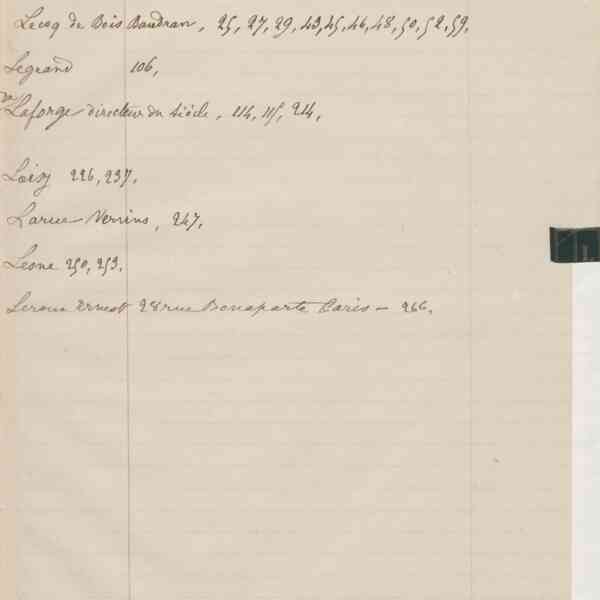 Lecoq de Bois Baudran, 25, 27, 29, 43, 45, 46, 48, 50, 52, 59,
Legrand 106,
Laforge directeur du Siècle, 114, 115, 214,
Loisy 226, 237,
Larue Vervins, 247,
Leone 250, 253.
Leroux Ernest 28 rue Bonaparte Paris — 266,